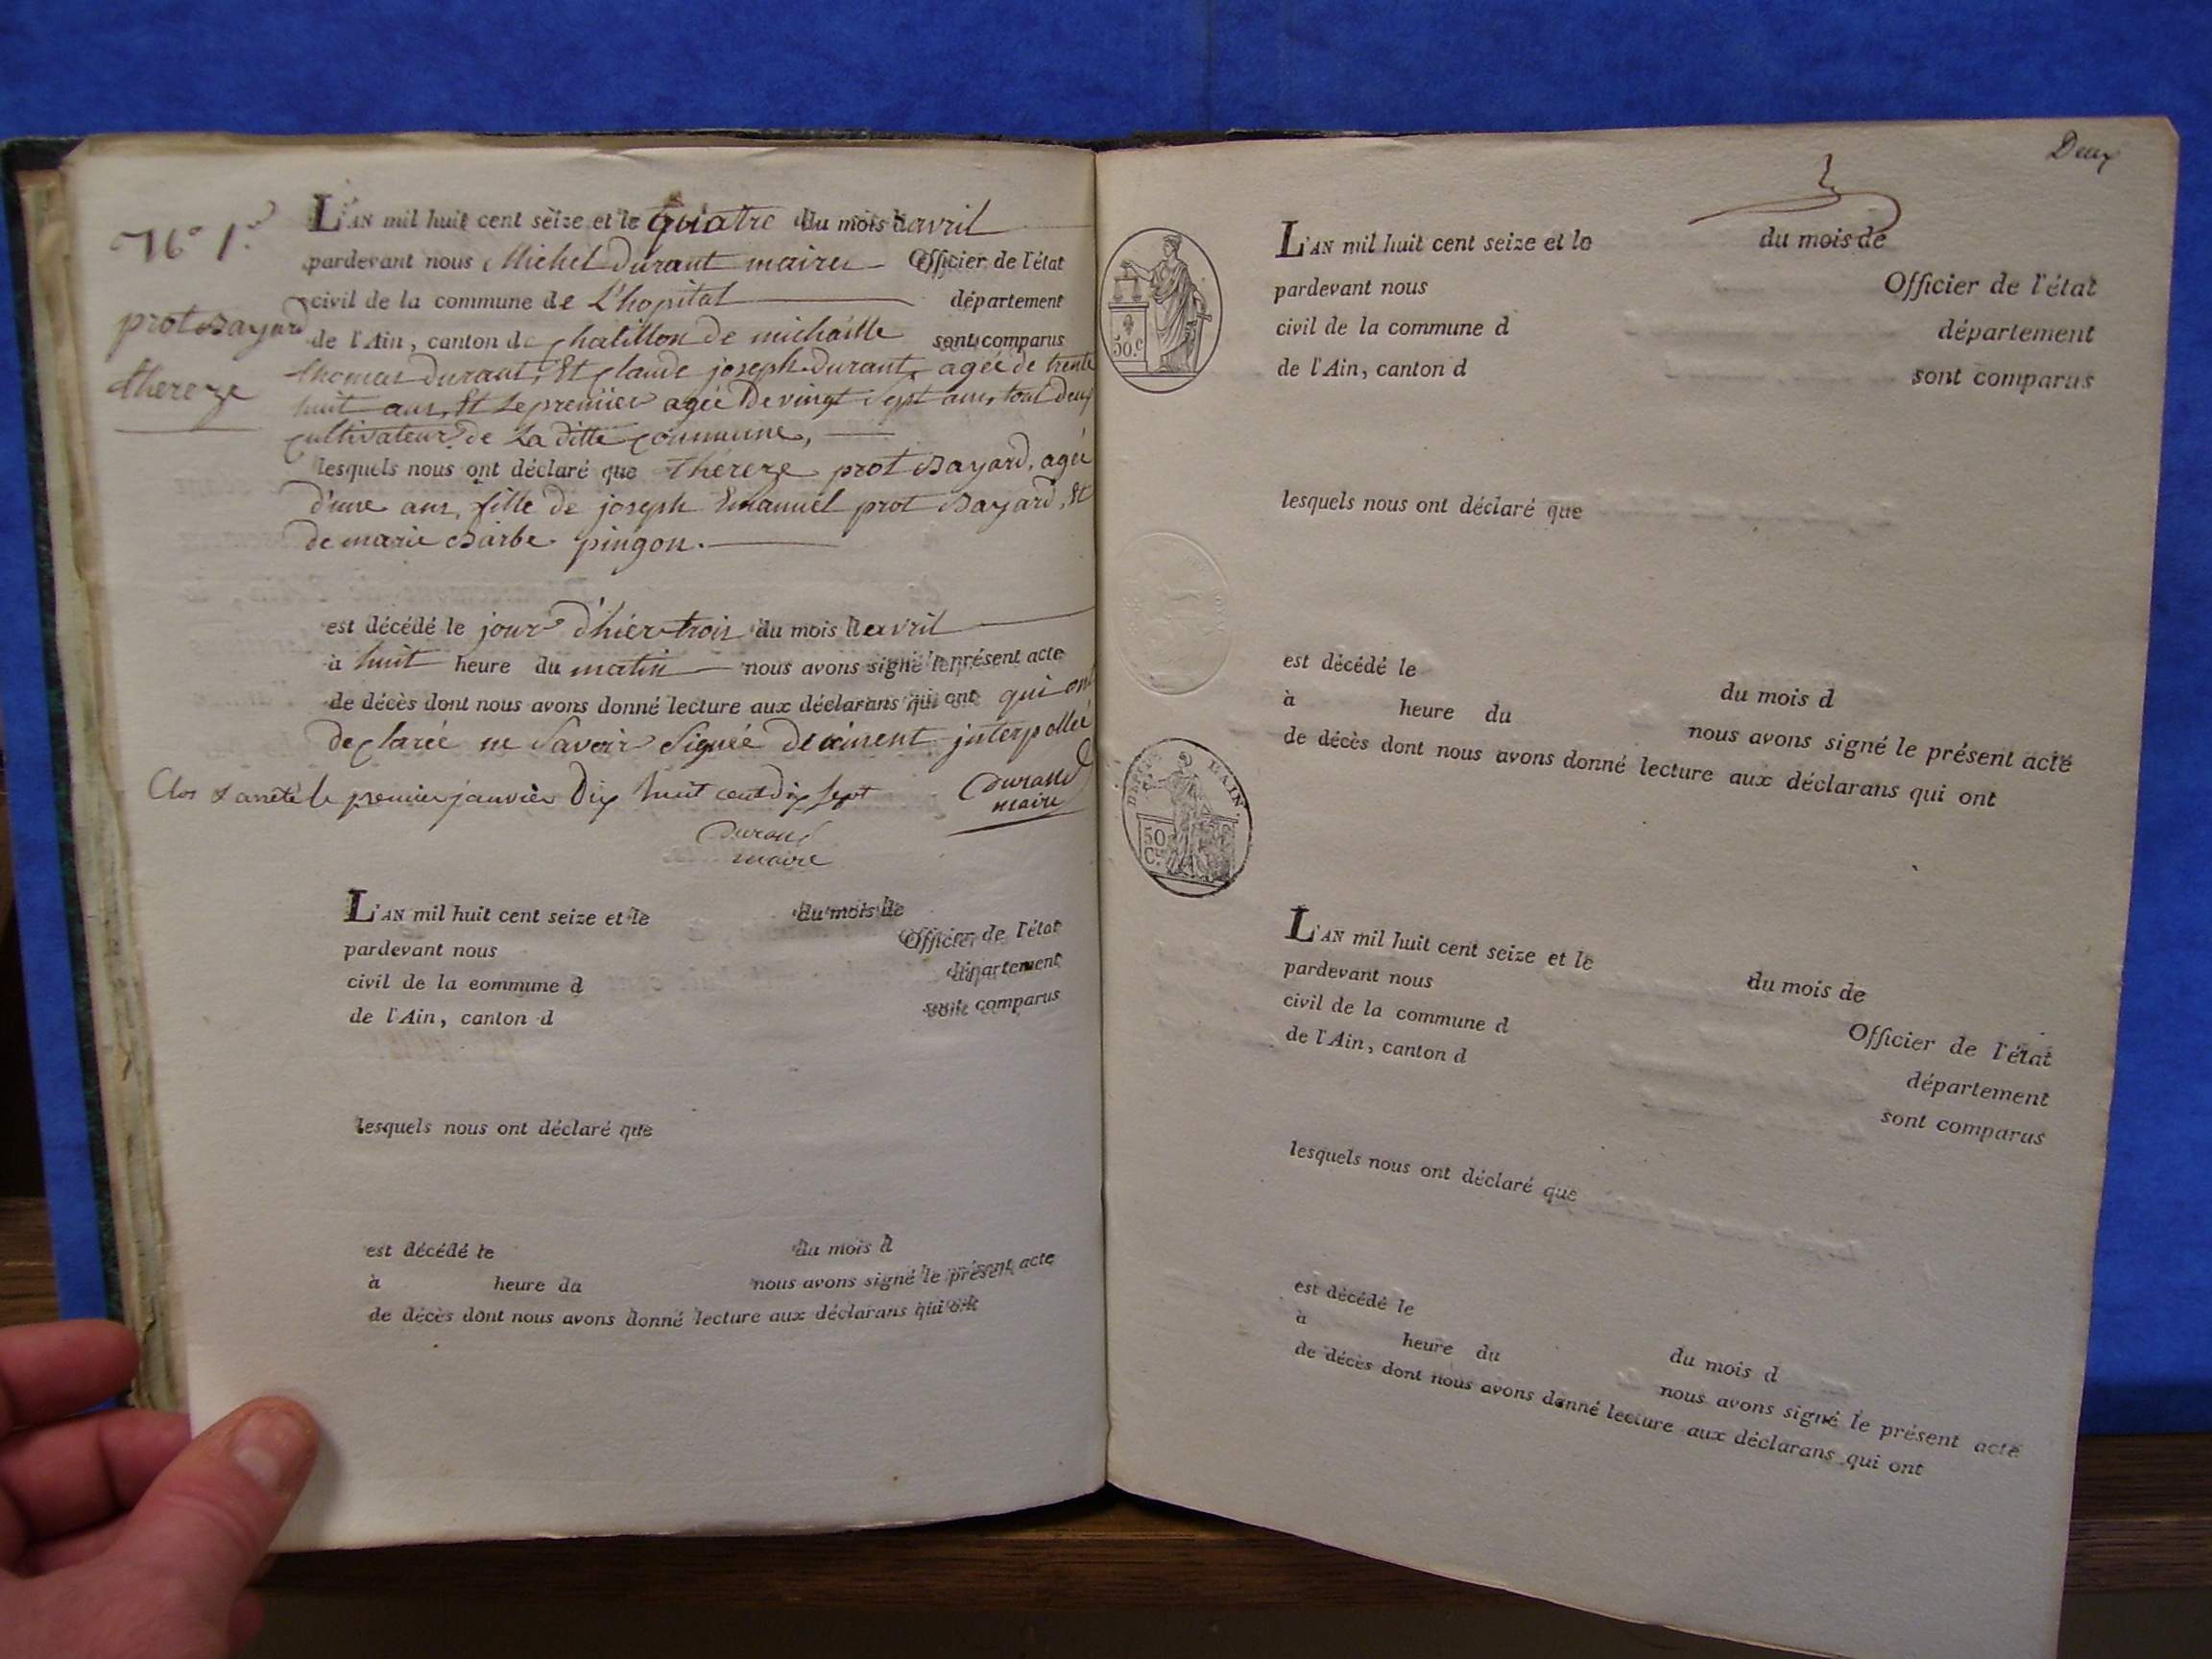 N.º 1.er
prot Bayard
thereze
L'AN mil huit cent seize et le quatre du mois d'avril
pardevant nous Michel Durant maire Officier de l'état
civil de la commune de L'hopital département
de l'Ain, canton de chatillon de michaille sont comparus
thomas Durant, Et claude joseph Durant, agée de trente
huit ans, Et Le premier agée De vingt Sept ans, tout Deux
cultivateur de La ditte commune,
lesquels nous ont déclaré que thereze prot Bayard, agée
d'une ans, fille de joseph Emanuel prot Bayard, Et
de marie Barbe pingon.
est décédé le jour d'hier trois du mois d'avril
à huit heure du matin nous avons signé le présent acte
de décès dont nous avons donné lecture aux déclarans qui ont qui ont
declarée ne Savoir Signée De interpollée
Clos & arrêté le premier janvier Dix huit cent dix sept
Durand
maire
Durand
maire
L'AN mil huit cent seize et le du mois de
pardevant nous Officier de l'état
civil de la commune d département
de l'Ain, canton d sont comparus
lesquels nous ont déclaré que
est décédé le du mois d
à heure du nous avons signé le présent acte
de décès dont nous avons donné lecture aux déclarans qui ont
Deux
L'AN mil huit cent seize et le du mois de
pardevant nous Officier de l'état
civil de la commune d département
de l'Ain, canton d sont comparus
50.c
lesquels nous ont déclaré que
est décédé le du mois d
à heure du nous avons signé le présent acte
de décès dont nous avons donné lecture aux déclarans qui ont
L'AIN.
50
C.
L'AN mil huit cent seize et le du mois de
pardevant nous Officier de l'état
civil de la commune d département
de l'Ain, canton d sont comparus
lesquels nous ont déclaré que
est décédé le du mois d
à heure du nous avons signé le présent acte
de décès dont nous avons donné lecture aux déclarans qui ont